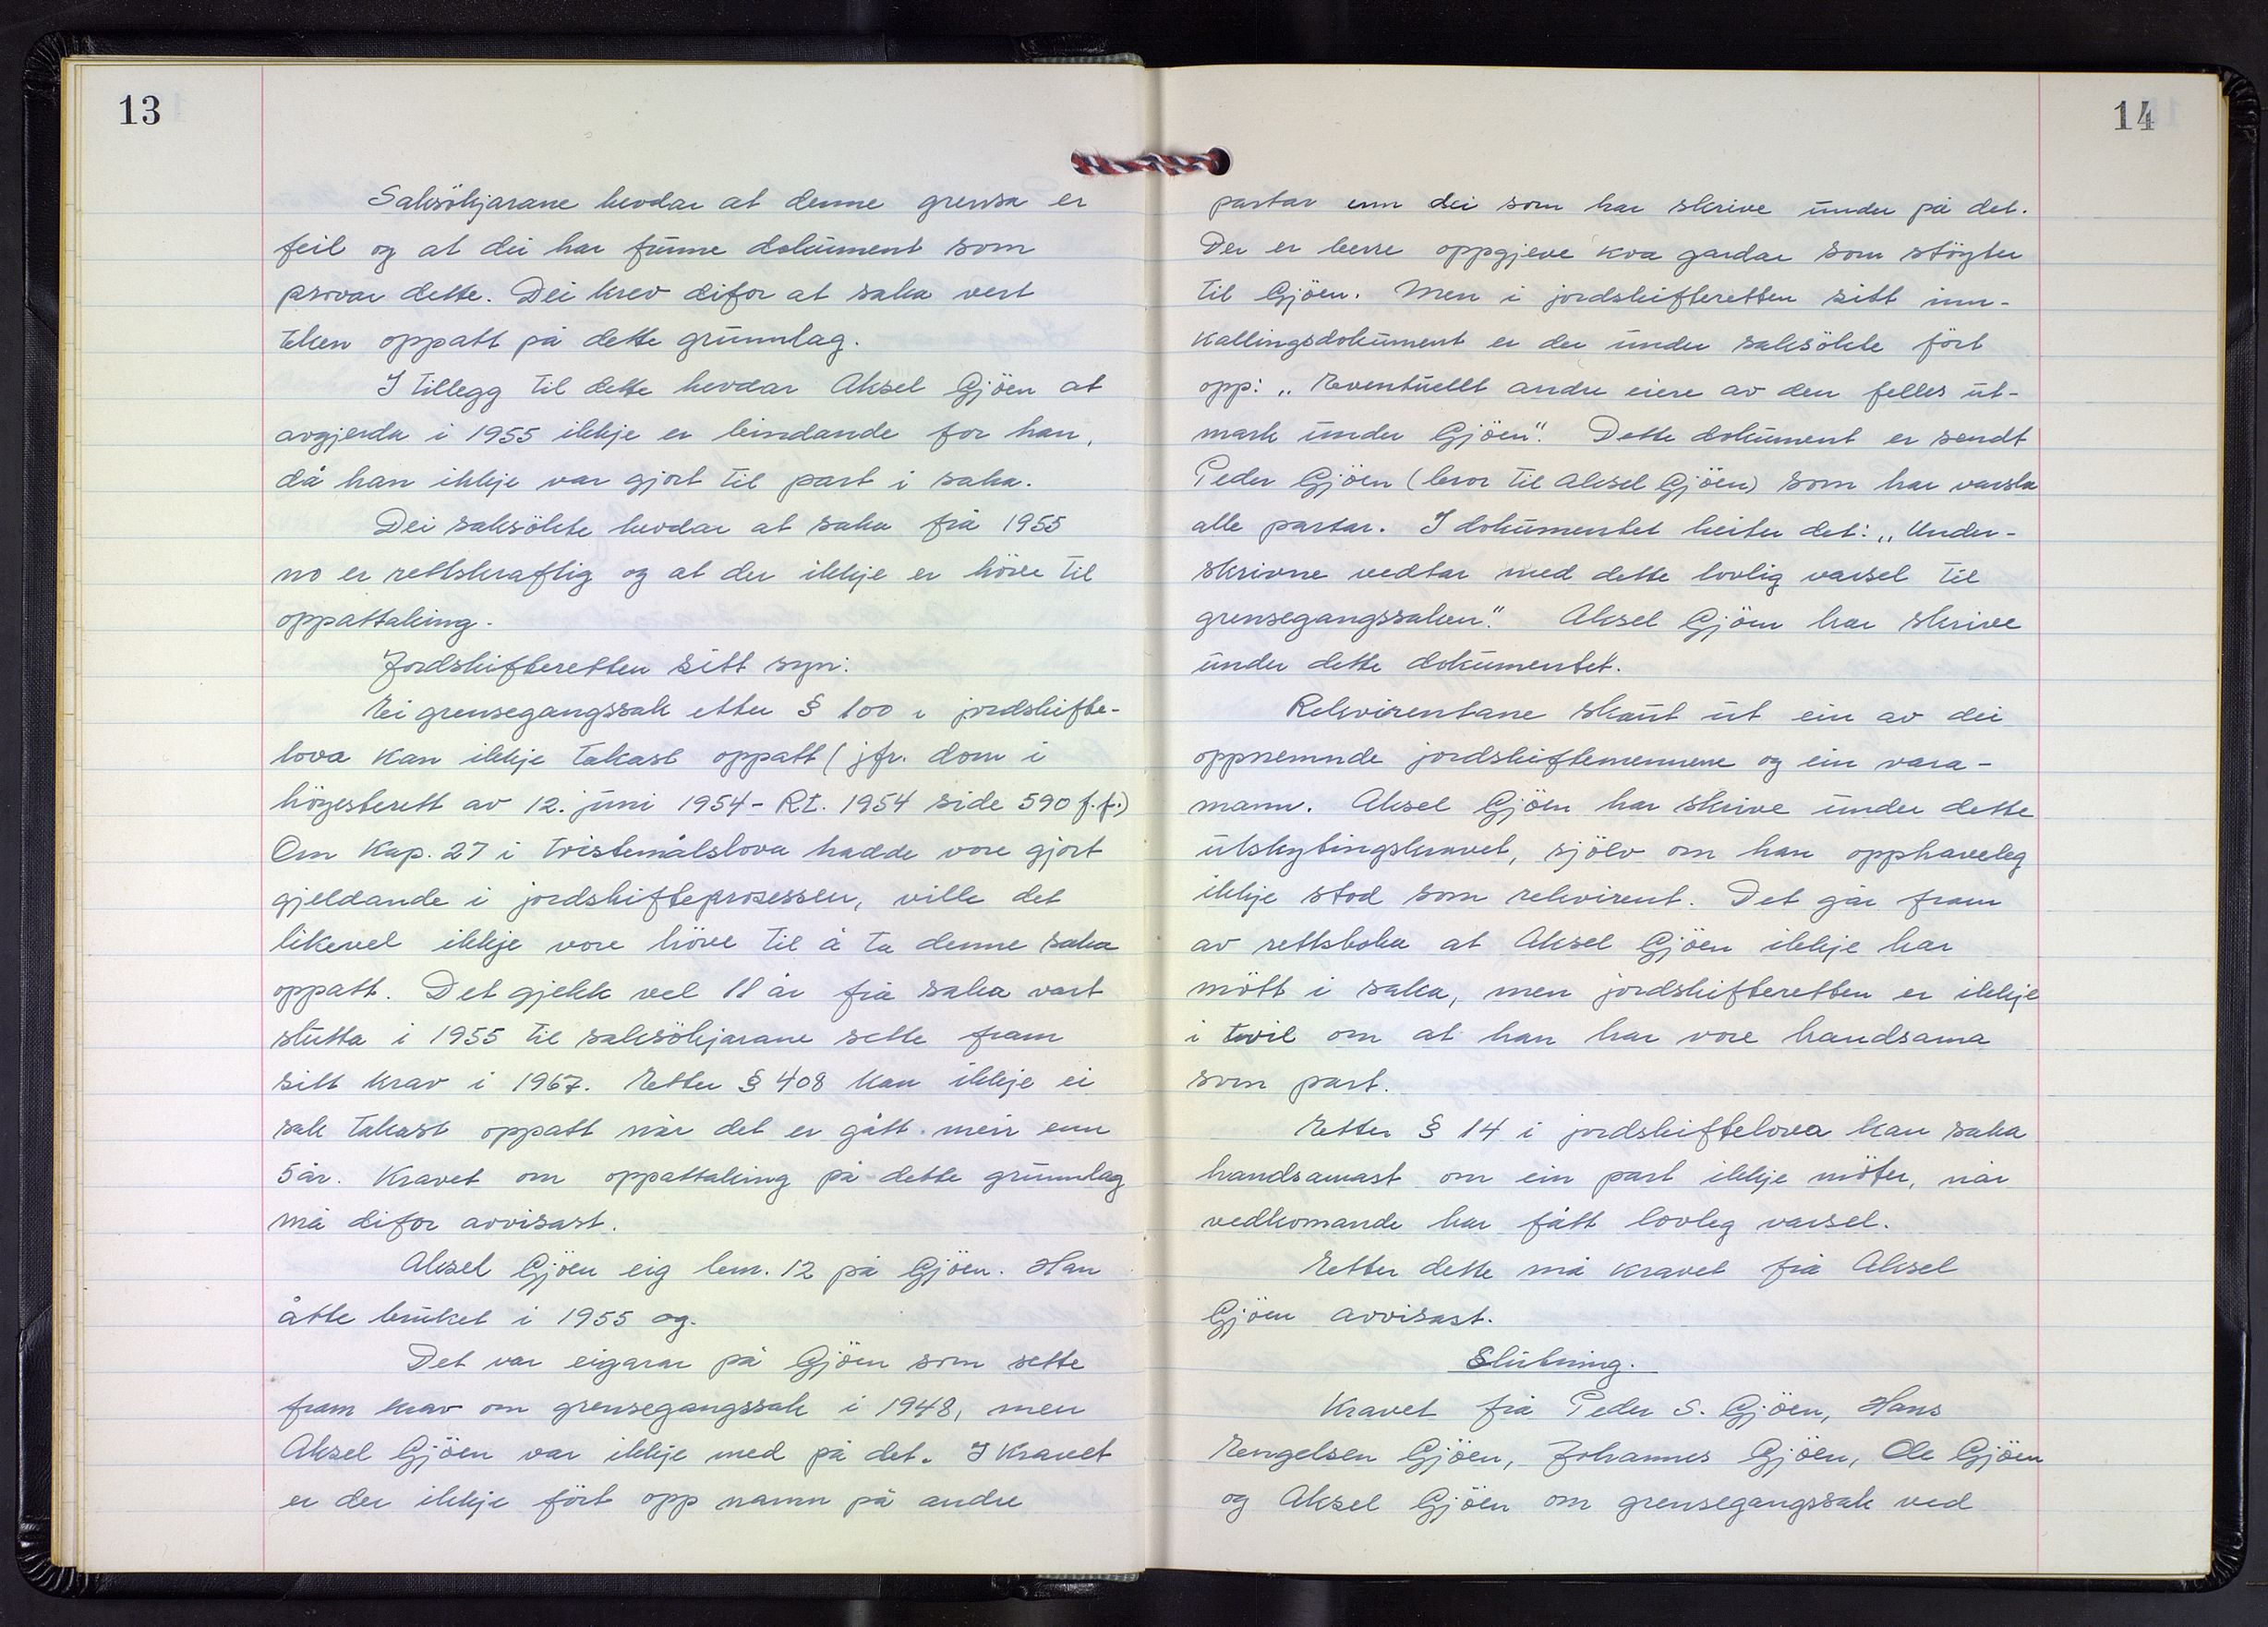 13
Saksökjarane hevdar at denne grensa er
feil og at dei har funne dokument som
provar dette. Dei krev difor at saka vert
teken oppatt på dette grunnlag.
I tillegg til dette hevdar Aksel Gjöen at
avgjerda i 1955 ikkje er bindande for han,
då han ikkje var gjort til part i saka.
Dei saksökte hevdar at saka frå 1955
no er rettskraftig og at der ikkje er höve til
oppattaking.
Jordskifteretten sitt syn:
Ei grensegangssak etter § 100 i jordskifte-
lova kan ikkje takast oppatt (jfr. dom i
högesterett av 12. juni 1954 - Rt. 1954 side 590 f.f.)
Om kap. 27 i tvistemålslova hadde vore gjort
gjeldande i jordskifteprosessen, ville det
likevel ikkje vore höve til å ta denne saka
oppatt. Det gjekk vel 11 år frå saka vart
slutta i 1955 til saksökjarane sette fram
sitt krav i 1967. Etter § 408 kan ikkje ei
sak takast oppatt når det er gått meir enn
5 år. Kravet om oppattaking på dette grunnlag
må difor avvisast.
Aksel Gjöen eig bnr. 12 på Gjöen. Han
åtte bruket i 1955 og.
Det var eigarar på Gjöen som sette
fram krav om grensegangssak i 1948, men
Aksel Gjöen var ikkje med på det. I kravet
er der ikkje fört opp namn på andre
14
partar enn dei som har skrive under på det.
Der er berre oppgjeve kva gardar som stöyter
til Gjöen. Men i jordskifteretten sitt inn-
kallingsdokument er der under saksökte fört
opp: „Eventuellt andre eiere av den felles ut-
mark under Gjöen". Dette dokument er sendt
Peder Gjöen (bror til Aksel Gjöen) som har varsla
alle partar. I dokumentet heiter det: „Under-
skrivne vedtar med dette lovlig varsel til
grensegangssaken." Aksel Gjöen har skrive
under dette dokumentet.
Rekvirentane skaut ut ein av dei
oppnemnde jordskiftemennene og ein vara-
mann. Aksel Gjöen har skrive under dette
utskytingskravet, sjölv om han opphaveleg
ikkje stod som rekvirent. Det går fram
av rettsboka at Aksel Gjöen ikkje har
mött i saka, men jordskifteretten er ikkje
i tvil om at han har vore handsama
som part.
Etter § 14 i jordskiftelova kan saka
handsamast om ein part ikkje möter, når
vedkomande har fått lovleg varsel.
Etter dette må kravet frå Aksel
Gjöen avvisast.
Slutning.
Kravet frå Peder S. Gjöen, Hans
Engelsen Gjöen, Johannes Gjöen, Ole Gjöen
og Aksel Gjöen om grensegangssak ved